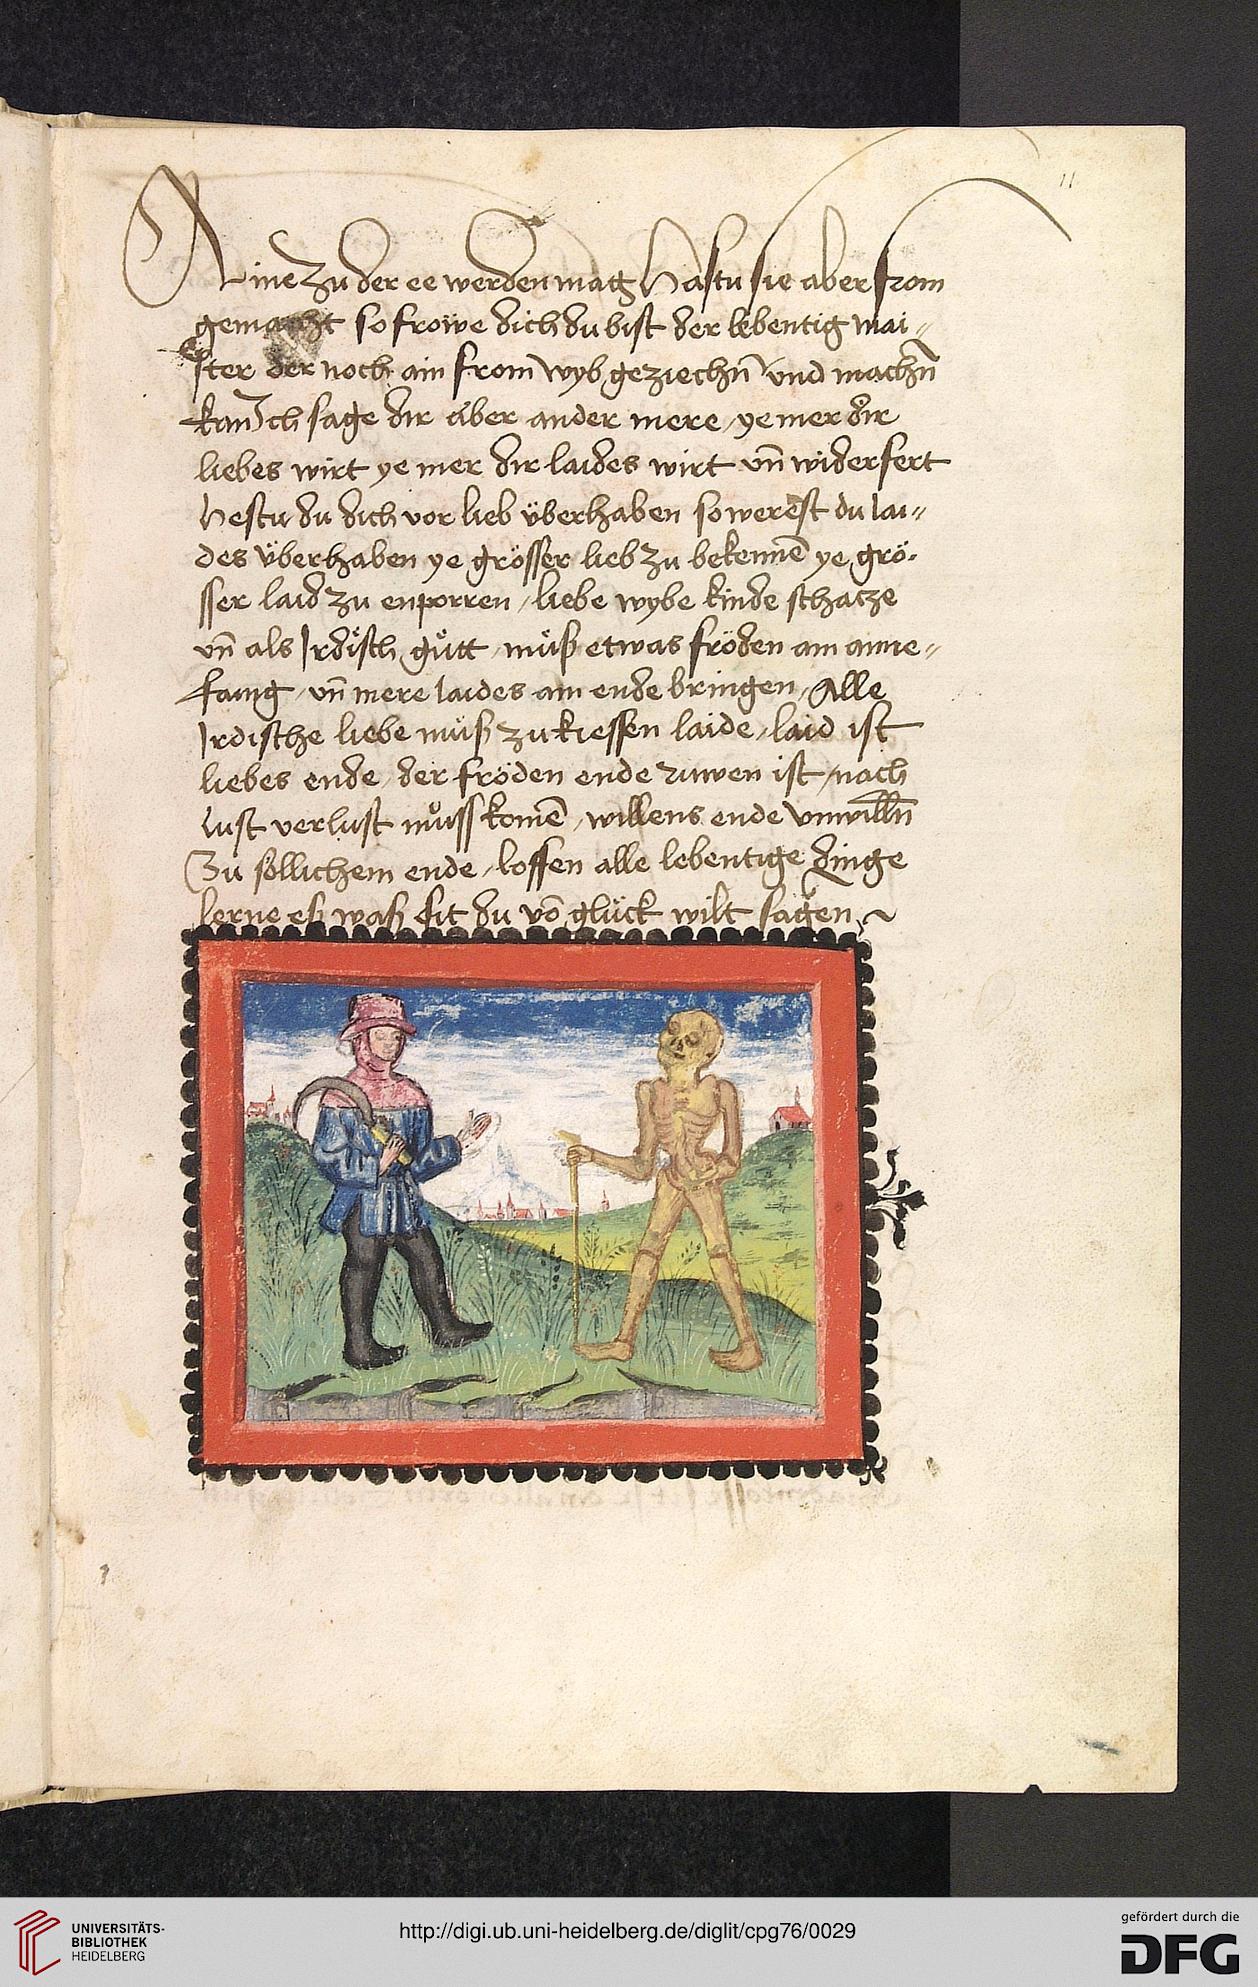 11
Aine zu der ee werden mag Hastu sie aber from
gemacht so frowe dich du bist der lebentig mai„
ster der noch ain from wyb geziechn̄ vnd machn̄
kan Ich sage dir aber ander mere / ye mer dir
liebes wirt ye mer dir laides wirt vn̄ widerfert
Hestu du dich vor lieb überhaben so werest du lai„
des überhaben ye grösser lieb zu bekennē ye grö-
sser laid zu enporren / liebe wybe kinde schacze
vn̄ als Irdisch gůtt / můß etwas fröden am anne„
fang / vn̄ mere laides am ende bringen / Alle
Irdische liebe můß zu kiessen laide / laid ist
liebes ende / der fröden ende ruwen ist / nach
lust verlust můss komē / willens ende vnwilln̄
Zu söllichem ende / loffen alle lebentige dinge
lerne eß waß sit du vō glück wilt sagen
UNIVERSITÄTS-
BIBLIOTHEK
HEIDELBERG
http://digi.ub.uni-heidelberg.de/diglit/cpg76/0029
gefördert durch die
DFG